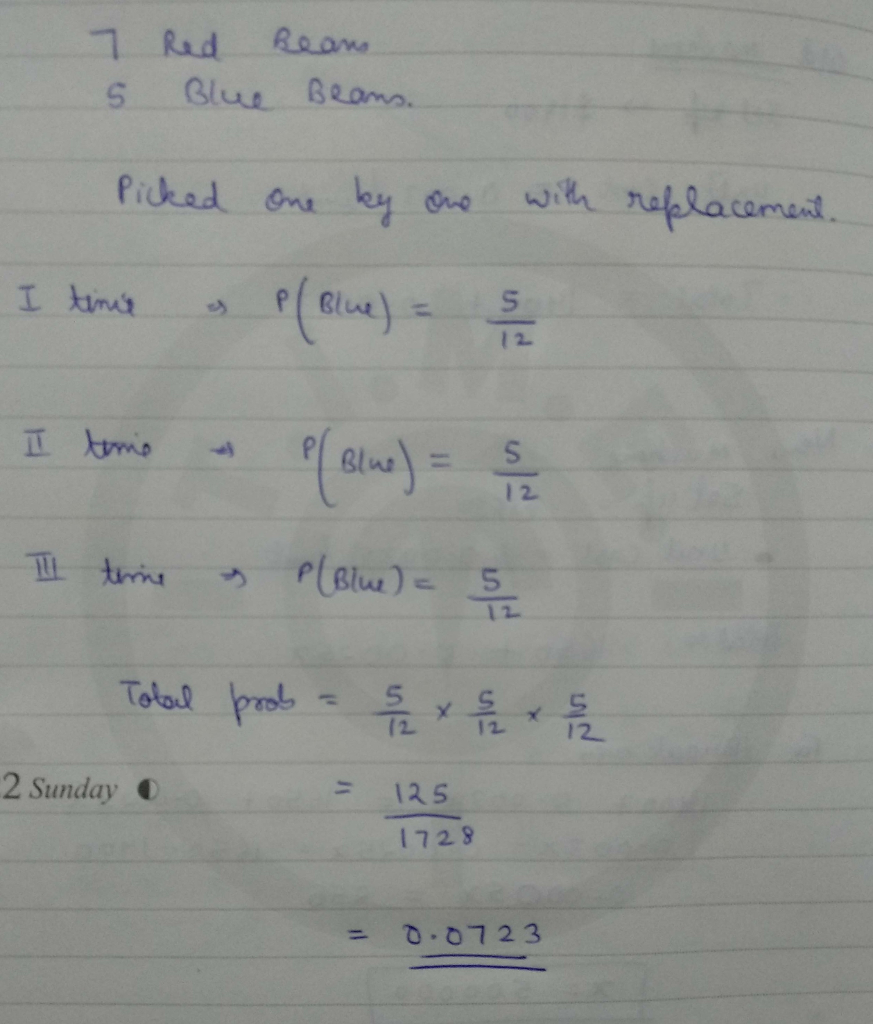 7 Red Beans
5 Blue Beans.
Picked one by one with replacement.
I time ⇒ P(Blue) = 5/12
II time ⇒ P(Blue) = 5/12
III time ⇒ P(Blue) = 5/12
Total prob = 5/12 × 5/12 × 5/12
2 Sunday = 125/1728
= 0.0723